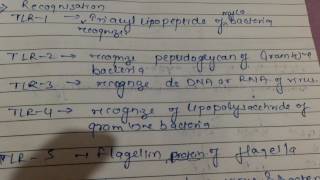 Recognisation
TLR-1 → Triacyl lipopeptide of myco bacteria
recognize
TLR-2 → recognize peptidoglycan of Gram +ve
bacteria
TLR-3 → recognize ds DNA or RNA of virus.
TLR-4 → recognize of lipopolysaccharide of
gram -ve bacteria
TLR-5 → flagellin protein of flagella
bacteria